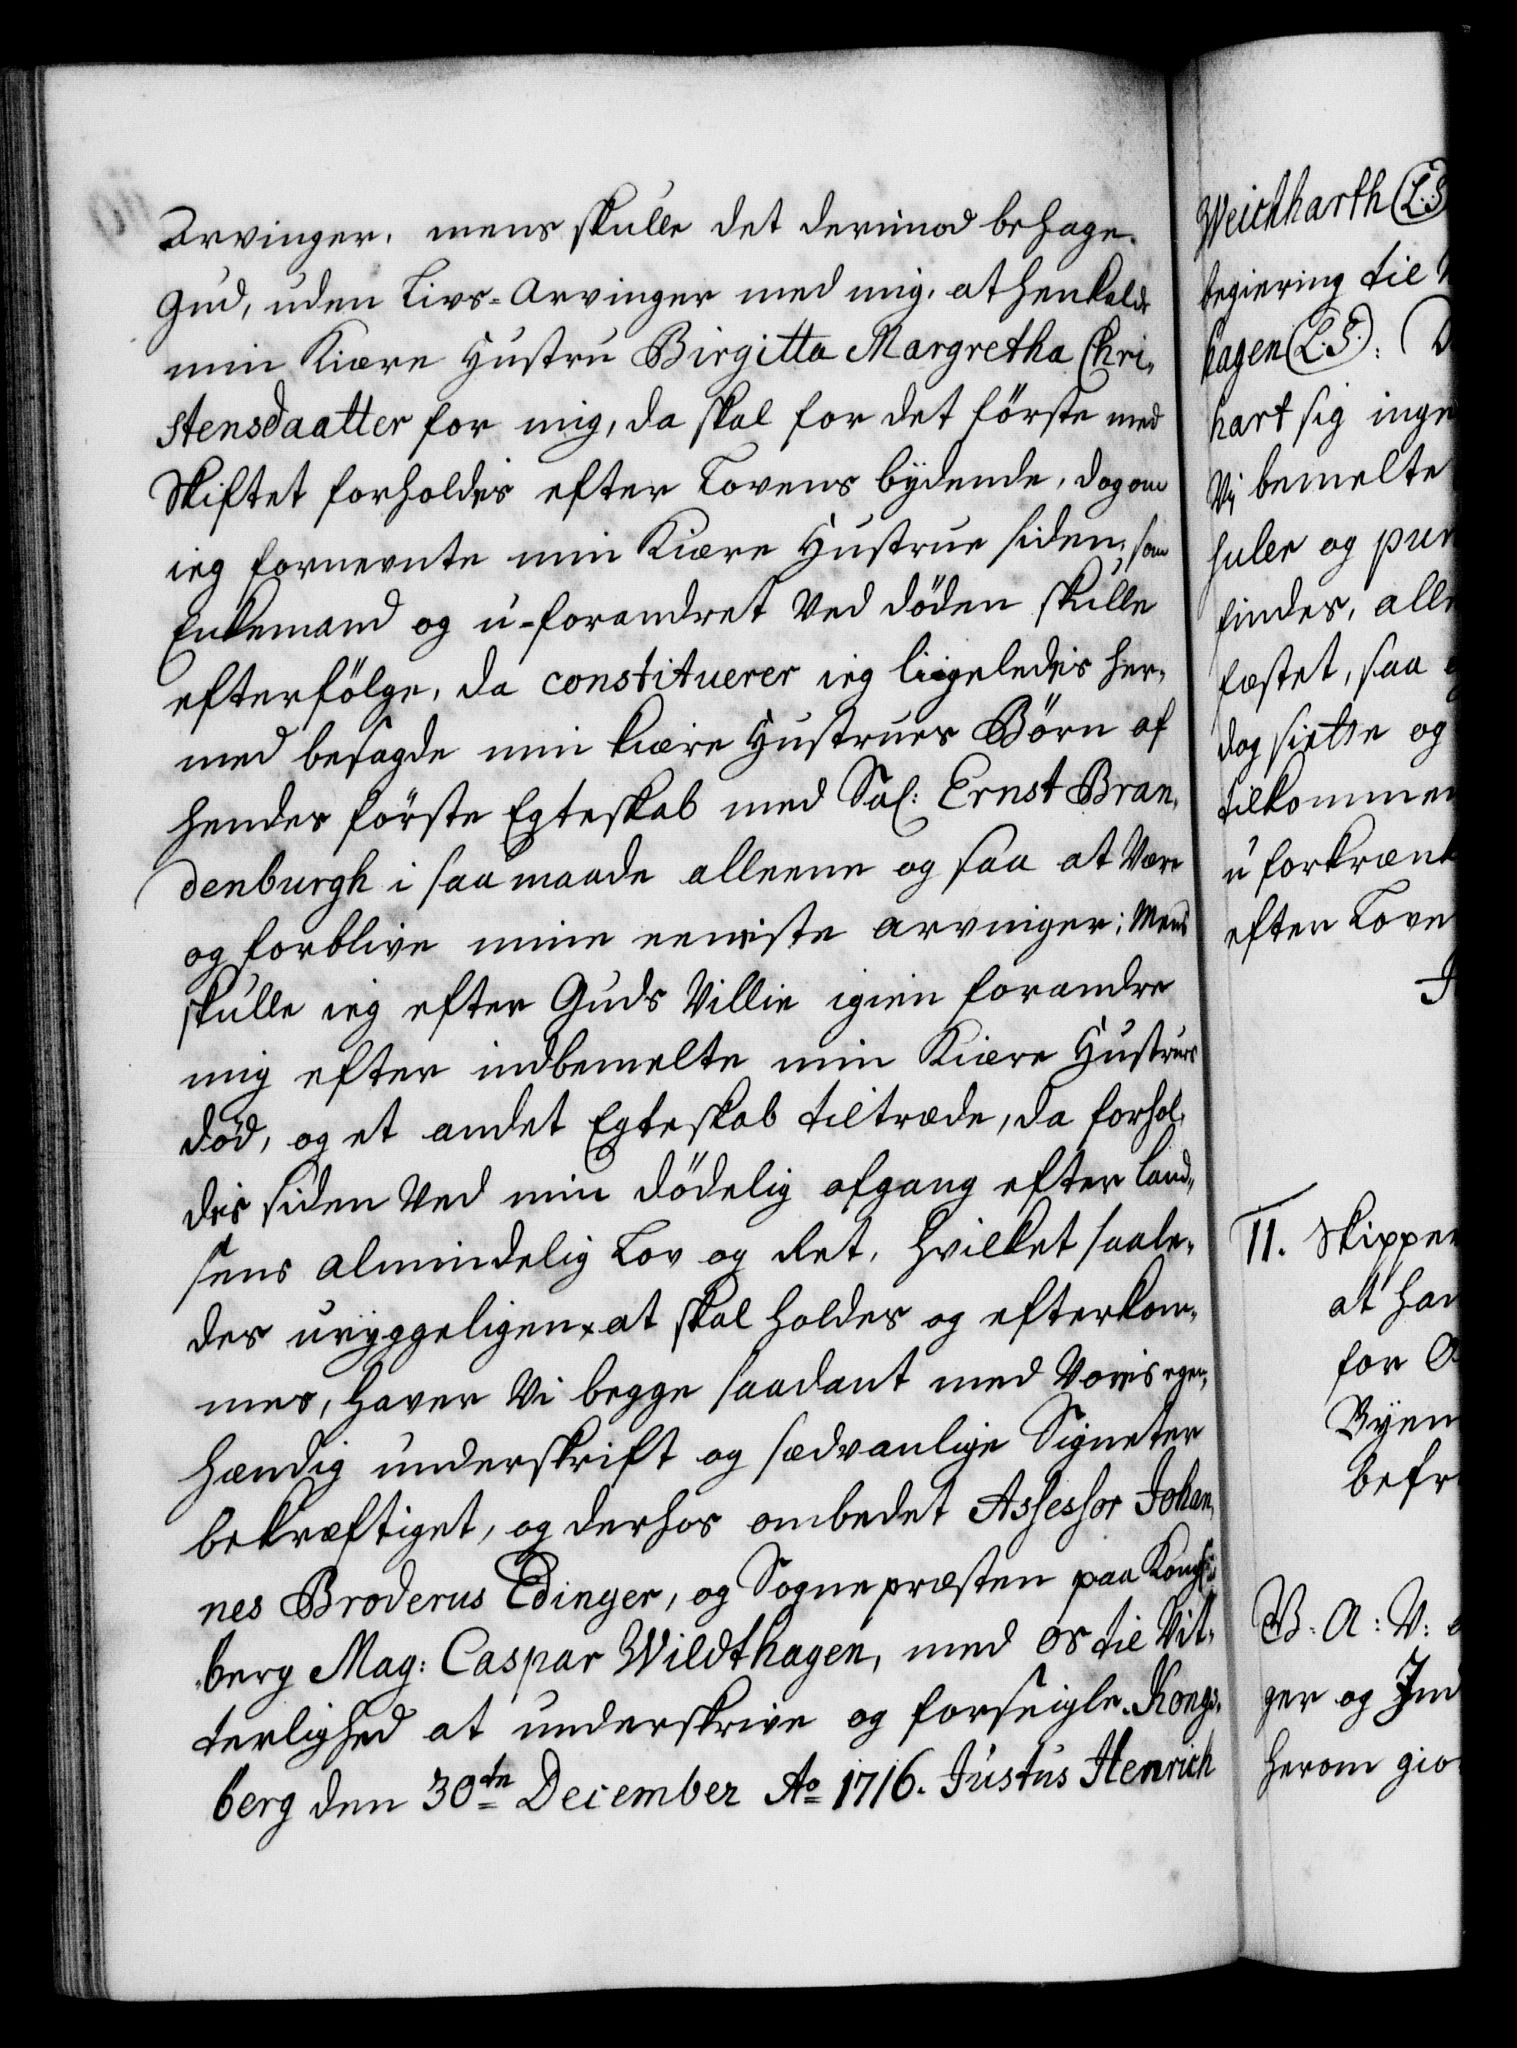 Arvinger, mens skulle det derimod behage
Gud, uden Livs-Arvinger med mig, at henkalde
min Kiære Hustru Birgitta Margretha Chri-
stensdaatter for mig, da skal for det förste med
Skiftet forholdes efter Lovens bÿdende, dog om
ieg fornevnte min Kiære Hustrue siden, som
Enkemand og u-forandret Ved döden skulle
efterfölge, da constituerer ieg ligeledes her-
med besagde min kiære Hustrues Börn af
hendes förste Egteskab med Sal: Ernst Bran-
denburgh i saa maade alleene og saa at Være
og forblive mine eeniste arvinger; Mens
skulle ieg efter Guds Villie igien forandre
mig efter indbemelte min Kiære Hustrues
död, og et andet Egteskab tiltræde, da forhol-
des siden Ved min dödelig afgang efter Land-
sens almindelig Lov og Ret. Hvilket saale-
des uryggeligen at skal holdes og efterkom-
mes, haver Vi begge saadant med Voris egen-
hændig underskrift og sædvanlige Signeter
bekræftiget, og derhos ombedet Assessor Johan-
nes Broderus Edinger, og Sognepræsten paa Kongs-
berg Mag: Caspar Wildthagen, med os til Vit-
terlighed at underskrive og forseigle. Kongs-
berg den 30te December Ao 1716. Justus Henrich
Weichharth (L.S.
begiering til
hagen (L.S.):
hart sig inge
Vÿ bemelte
huler og pun
findes, alle
fæstet, saa
dog sidste og
tilkommen
u forkrænk
efter Love
11. Skipper
at han
for
Bÿen
befr
W. A: V:
ger og Ind
herom gio